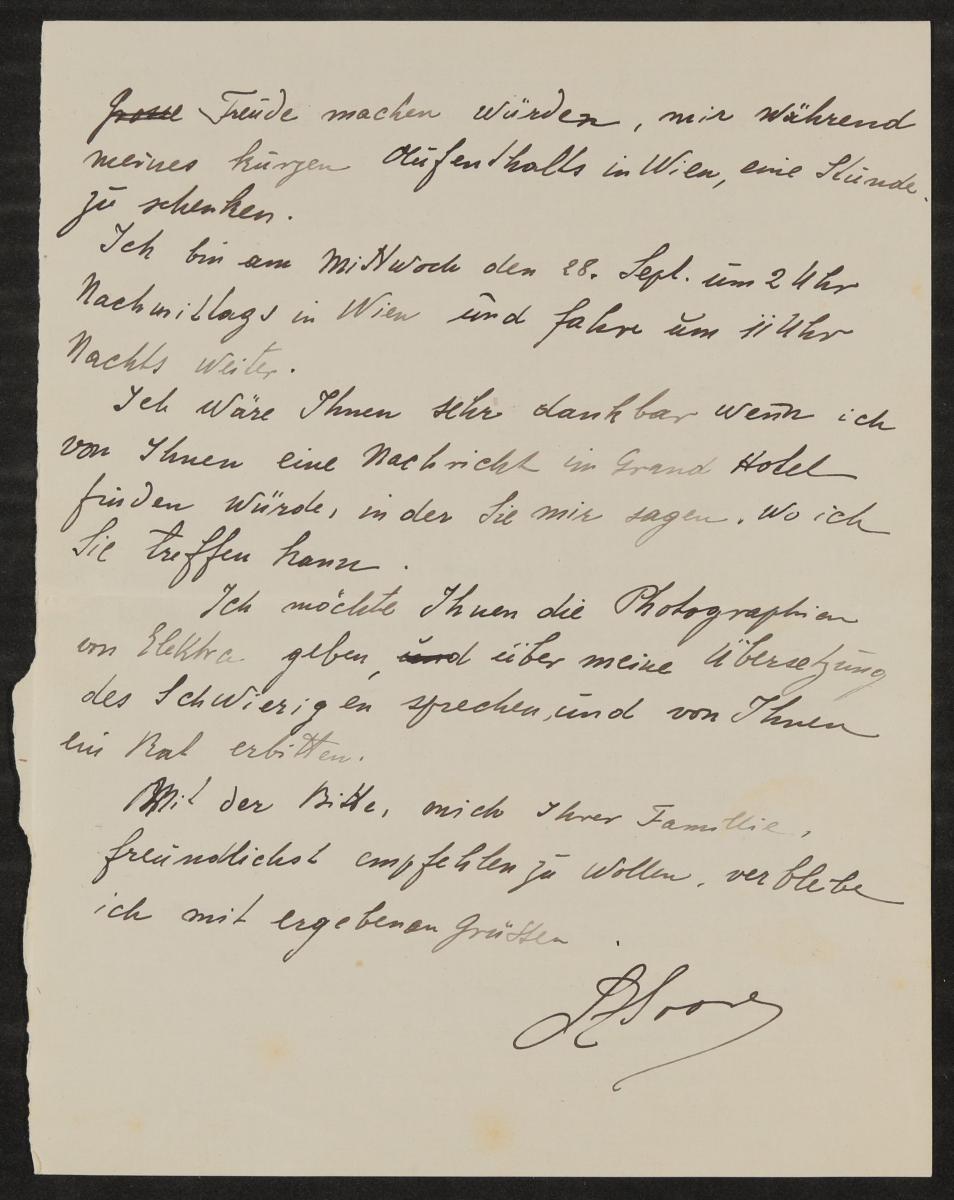 Grosse Freude machen würden, mir während
meines kurzen Aufenthalts in Wien, eine Stunde
zu schenken.
Ich bin am Mittwoch den 28. Sept. um 2 Uhr
Nachmittags in Wien und fahre um 11 Uhr
Nachts weiter.
Ich wäre Ihnen sehr dankbar wenn ich
von Ihnen eine Nachricht im Grand Hotel
finden würde, in der Sie mir sagen, wo ich
Sie treffen kann.
Ich möchte Ihnen die Photographien
von Elektra geben, und über meine Übersetzung
des Schwierigen sprechen, und von Ihnen
ein Rat erbitten.
Mit der Bitte, mich Ihrer Familie,
freundlichst empfehlen zu wollen, verbleibe
ich mit ergebenen Grüssen.